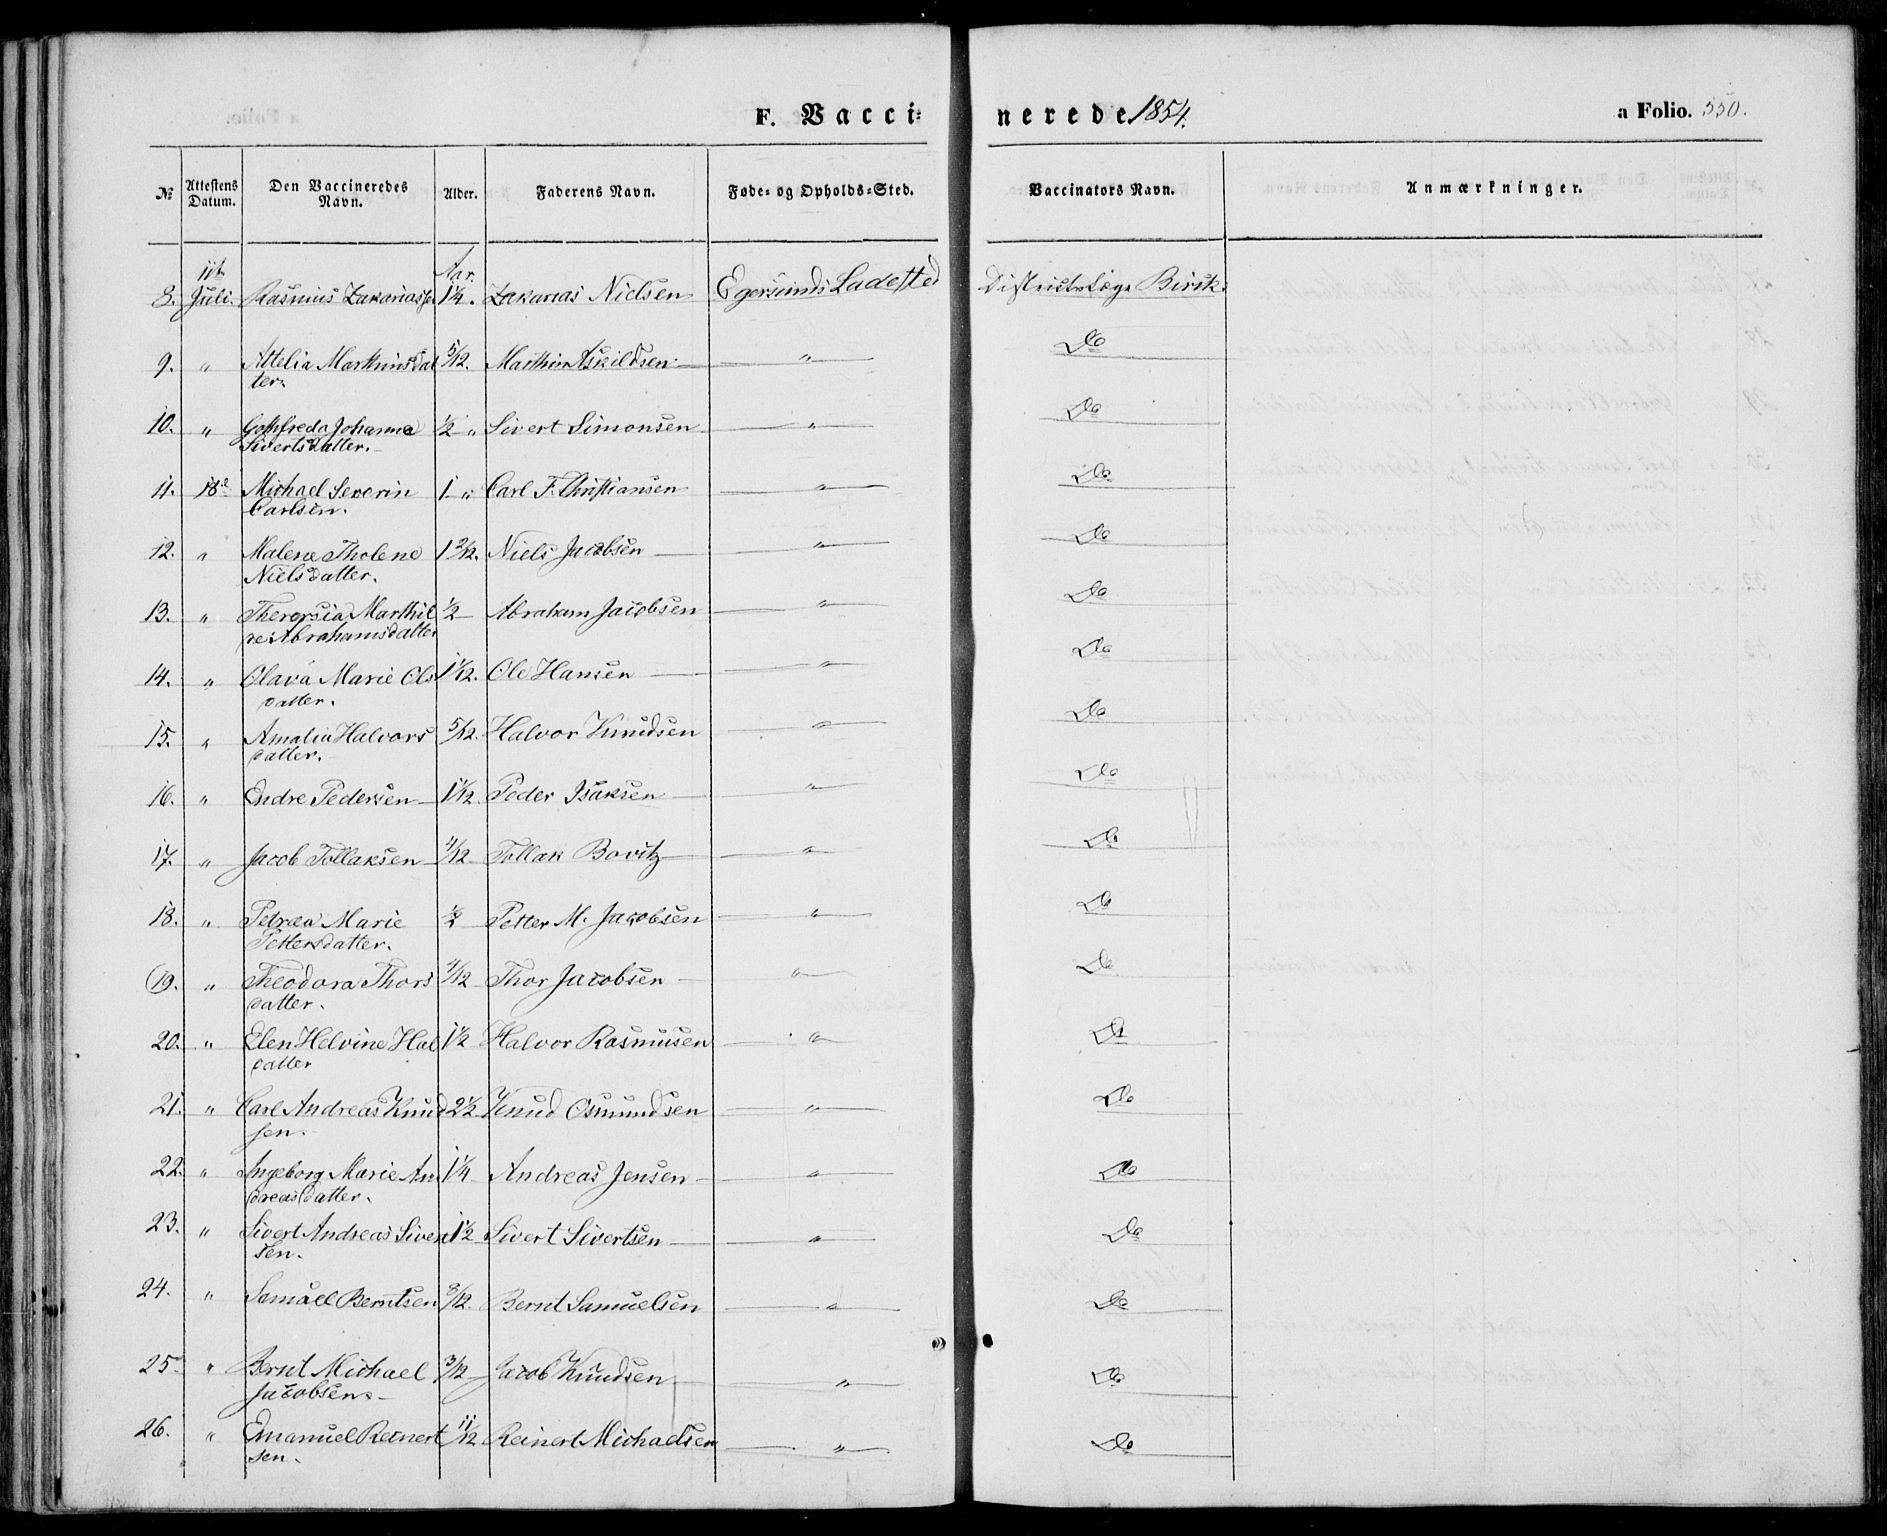 F. Vacci-nerede 1854. a Folio. 550.
№ Attestens Datum. Den Vaccineredes Navn. Alder. Faderens Navn. Føde- og Opholds-Sted. Vaccinators Navn. Anmærkninger.
11te Aar.
8. Juli. Rasmus Zakariass 1¼. Zakarias Nielsen Egersunds Ladested Districtslæge Birch.
9. " Attelia Marthinsdat 5/12. Marthin Askildsen " Do
ter.
10. " Johanna ½ " Sivert Simonsen " Do
Sivertsdatter.
11. 18de Michael Severin 1 " Carl F. Christiansen " Do
Carlsen.
12. " Malene Tholene 1 2/12. Niels Jacobsen " Do
Nielsdatter.
13. " Theresia Marthil ½ Abraham Jacobsen " Do
de Abrahamsdatter
14. " Olava Marie Ols 1 1/12. Ole Hansen " Do
datter.
15. " Amalia Halvors 5/12. Halvor Knudsen " Do
datter.
16. " Endre Pedersen 1 1/12 Peder Isaksen " Do
17. " Jacob Tollaksen 4/12 Tollak Bovitz " Do
18. " Petrea Marie ½ Petter M. Jacobsen " Do
Pettersdatter.
19. " Theodora Thors 4/12 Thor Jacobsen " Do
datter.
20. " Elen Helvine Hal 1½ Halvor Rasmusen " Do
datter
21. " Carl Andreas Knud 2½ Knud Osmundsen " Do
sen.
22. " Ingeborg Marie An 1¼ Andreas Jensen " Do
dreasdatter.
23. " Sivert Andreas Sivert 1½ Sivert Sivertsen " Do
sen.
24. " Samuel Berntsen 3/12. Bernt Samuelsen " Do
25. " Bernt Michael 3/12 Jacob Knudsen " Do
Jacobsen.
26. " Emanuel Reinert 11/12 Reinert Michaelsen " Do
sen.